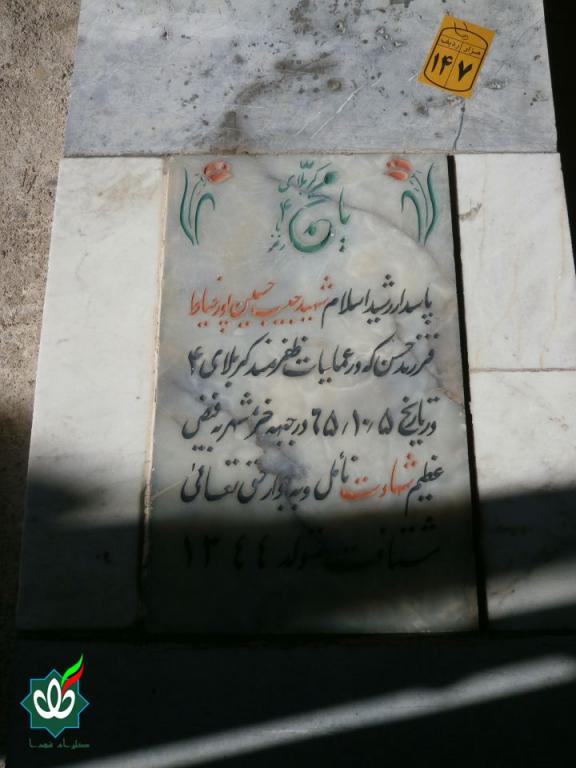 مزار ردیف
۱۴ ۷
کربلای ۴
یا محسن
پاسدار رشید اسلام شهید حبیب حسین پور خیاط
فرزند حسن که در عملیات ظفرمند کربلای ۴
در تاریخ ۶۵/۱۰/۵ در جبهه خرمشهر به فیض
عظیم شهادت نائل و به جوار حق تعالی
شتافت تولد ۱۳۴۴
گلزار شهدا